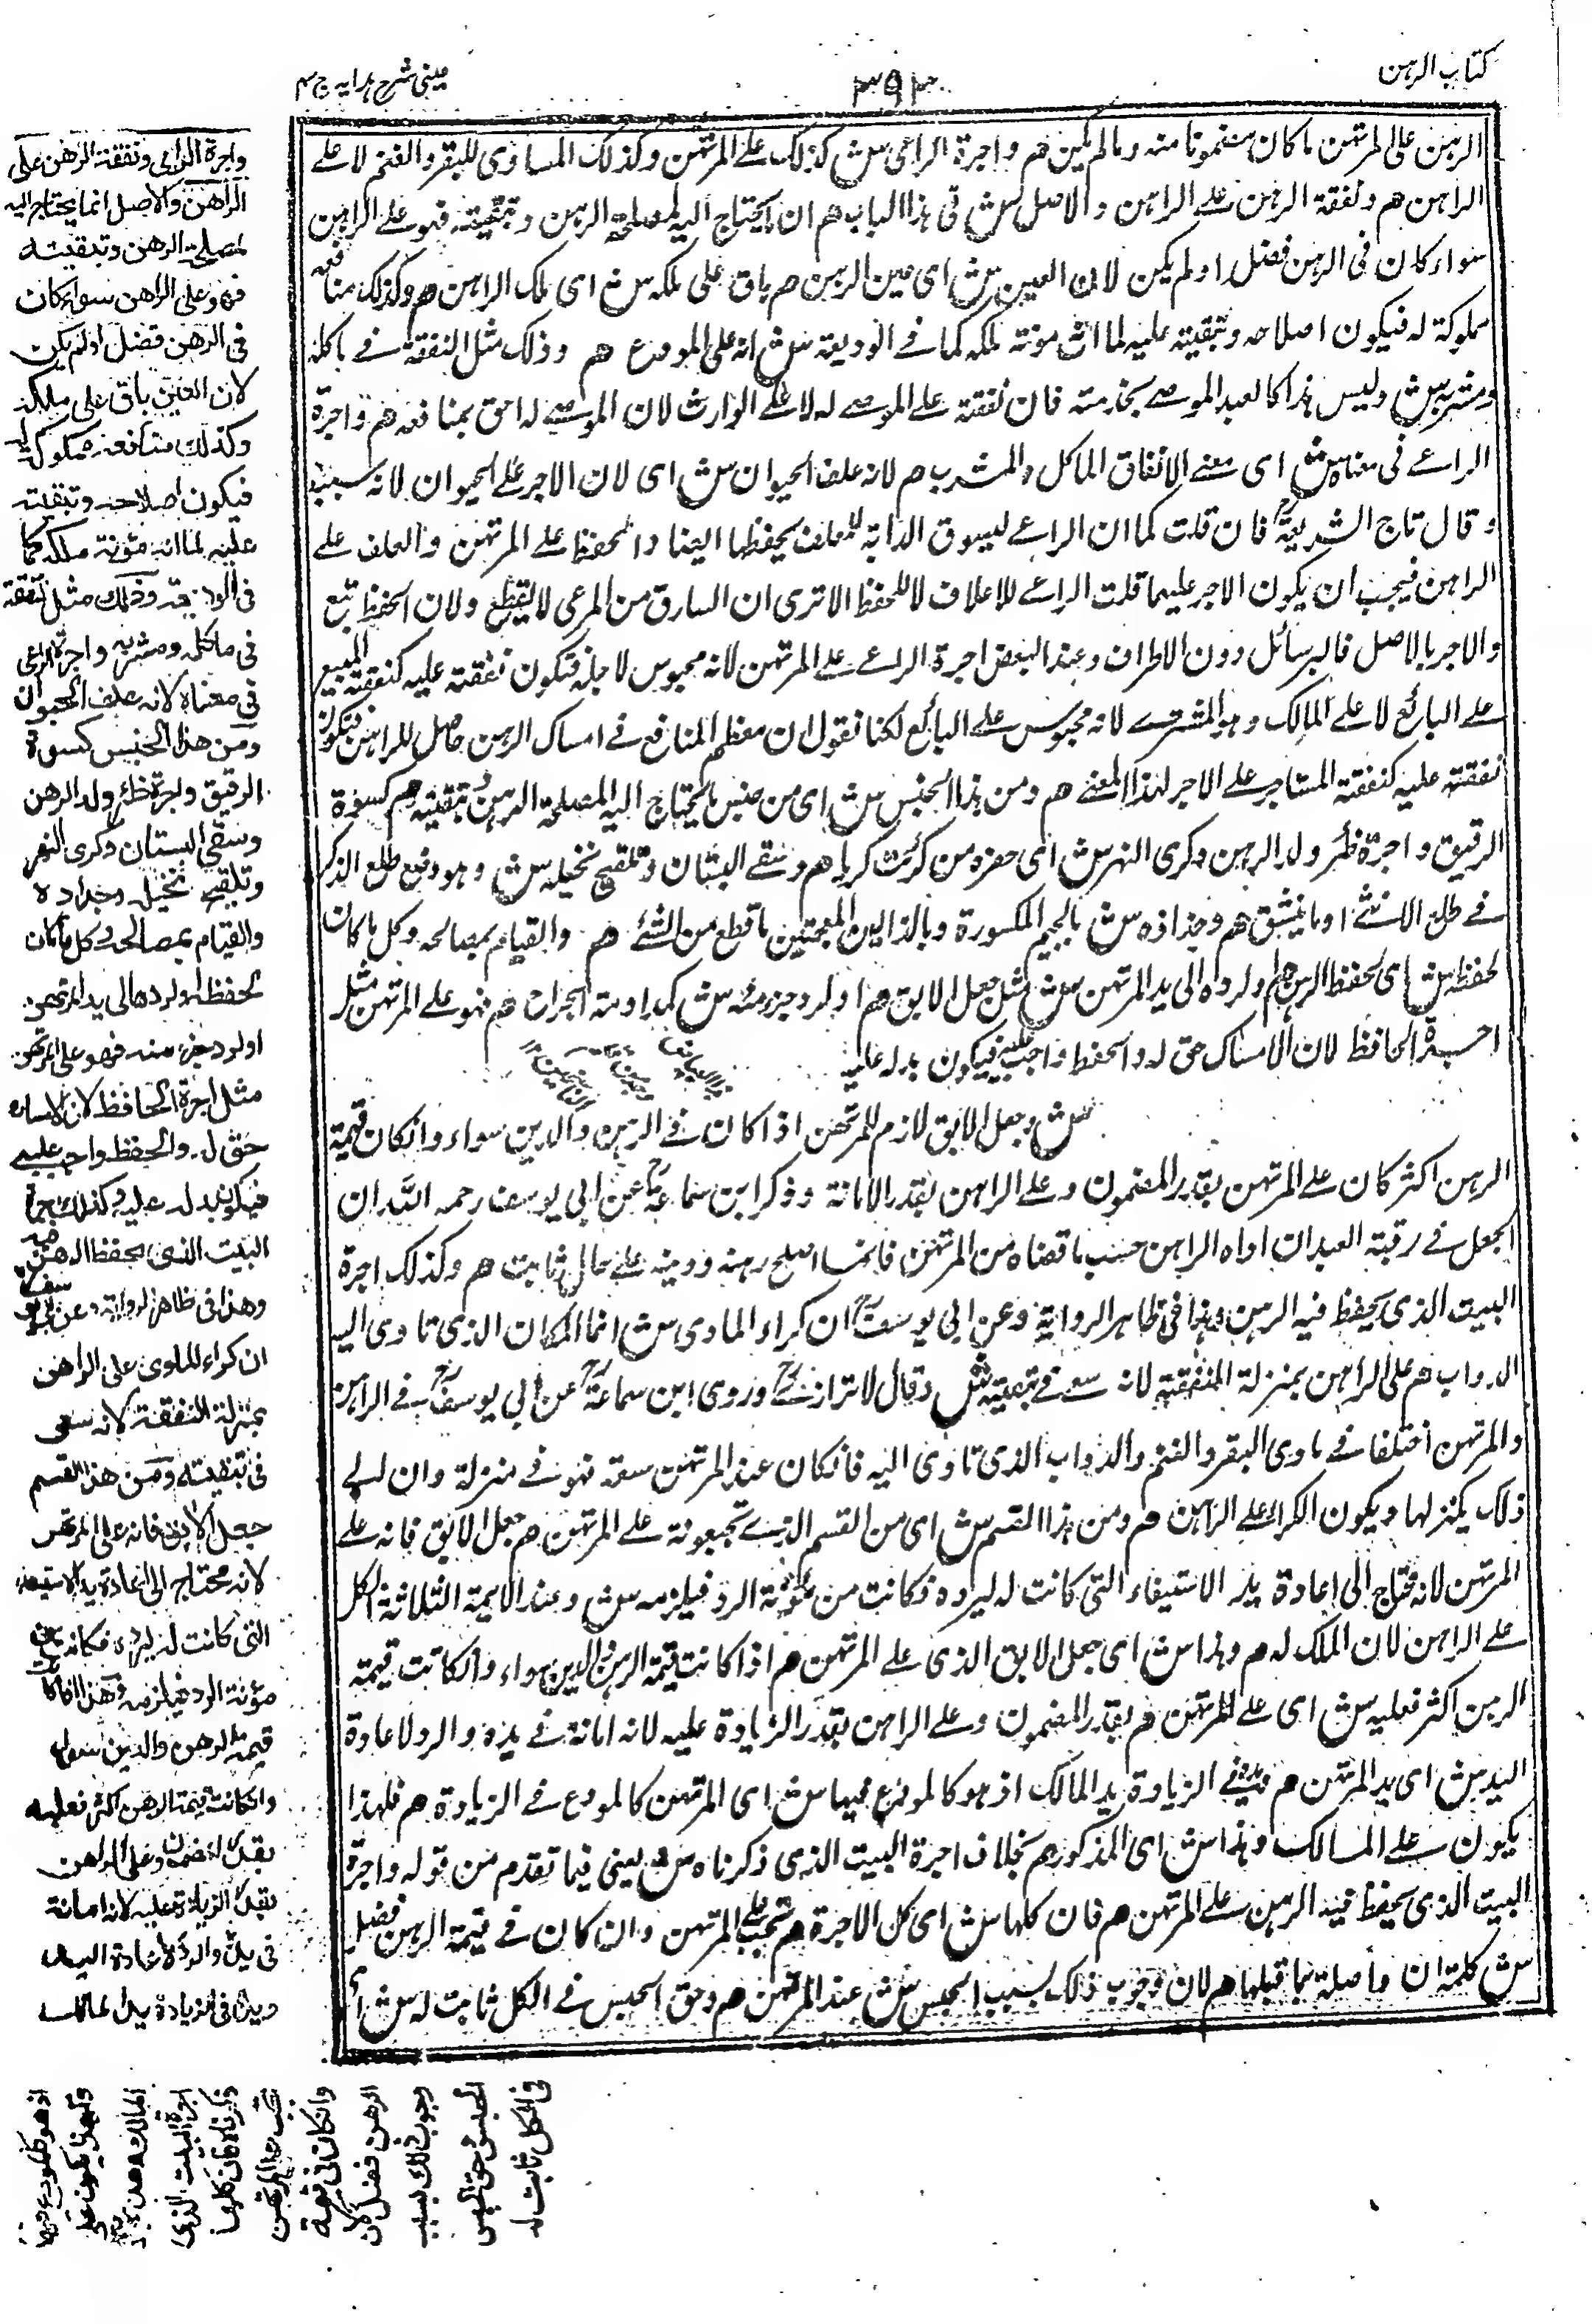 كتاب الرهن
۳۹۳
عینی شرح هدایه ج ۴
الرهن على المرتهن ما كان مضمونا منه وما لم يكن هم واجرة الراعى ش كذلك على المرتهن وكذلك الماوى للبقر والغنم لا على
الراهن هم ونفقة الرهن على الراهن والاصل ش فى هذا الباب هم ان ما يحتاج اليه لمصلحة الرهن وتبقيته فهو على الراهن
سواء كان فى الرهن فضل او لم يكن لان العين ش اى عين الرهن هم باق على ملكه ش اى ملك الراهن هم وكذلك منافعه
مملوكة له فيكون اصلاحه وتبقيته عليه لما انه مؤنة ملكه كما فى الوديعة ش انه على المودع هم وذلك مثل النفقة فى ماكله
ومشربه ش وليس هذا كالعبد الموصى بخدمته فان نفقته على الموصى له لا على الوارث لان الموصى له احق بمنافعه هم واجرة
الراعى فى معناه ش اى معنى الانفاق الماكل والمشرب هم لانه علف الحيوان ش اى لان الاجر على الحيوان لانه سببه
وقال تاج الشريعة فان قلت كما ان الراعى ليسوق الدابة للعلف يحفظها ايضا والحفظ على المرتهن والعلف على
الراهن فيجب ان يكون الاجر عليهما قلت الراعى للاعلاف لا للحفظ الا ترى ان السارق من المرعى لا يقطع ولان الحفظ تبع
والاجر بالاصل فالبر سائل دون الاطراف وعند البعض اجرة الراعى على المرتهن لانه محبوس لاجله فتكون نفقته عليه كنفقة المبيع
على البائع لا على المالك وهو المشترى لانه محبوس على البائع لكنا نقول ان معظم المنافع فى امساك الرهن حاصل للراهن فتكون
نفقته عليه كنفقة المستاجر على الاجر لهذا المعنى هم ومن هذا الجنس ش اى من جنس ما يحتاج اليه لمصلحة الرهن وتبقيته هم كسوة
الرقيق واجرة ظئر ولد الرهن وكرى النهر ش اى حفره من كريت كريا هم وسقى البستان وتلقيح نخيله ش وهو وضع طلع الذكر
فى طلع الانثى اول ما ينشق هم وجذاذه ش بالجيم المكسورة وبالذالين المعجمتين ما قطع من الشئ هم والقيام بمصالحه وكل ما كان
لحفظه ش اى لحفظ الرهن هم او لرده الى يد المرتهن ش مثل جعل الابق هم او لرد جزء منه ش كمداومة الجراح هم فهو على المرتهن مثل
اجرة الحافظ لان الامساك حق له والحفظ واجب عليه فيكون بدله عليه
ش وجعل الابق لازم للمرتهن اذا كان فى الرهن والدين سواء وان كان قيمة
الرهن اكثر كان على المرتهن بقدر المضمون وعلى الراهن بقدر الامانة وذكر ابن سماعة عن ابى يوسف رحمه الله ان
الجعل فى رقبة العبد ان اداه الراهن حسب ما قضاه من المرتهن فانما اصلح رهنه ودينه على حاله ثابت هم وكذلك اجرة
البيت الذى يحفظ فيه الرهن وهذا فى ظاهر الرواية وعن ابى يوسف ان كراء الماوى ش انما المكان الذى تاوى اليه
الدواب هم على الراهن بمنزلة النفقة لانه سعى فى تبقيته ش وقال لا ترازى وروى ابن سماعة عن ابى يوسف فى الراهن
والمرتهن اختلفا فى ماوى البقر والغنم والدواب الذى تاوى اليه فان كان عند المرتهن سعة فهو فى منزله وان ابى
ذلك يكترى لها ويكون الكراء على الراهن هم ومن هذا القسم ش اى من القسم الذى يجب مؤنته على المرتهن هم جعل الابق فانه على
المرتهن لانه محتاج الى اعادة يد الاستيفاء التى كانت له ليرده فكانت من مؤنة الرد فيلزمه ش وعند الايمة الثلاثة الكل
على الراهن لان الملك له هم وهذا ش اى جعل الابق الذى على المرتهن هم اذا كانت قيمة الرهن والدين سواء وان كانت قيمة
الرهن اكثر فعليه ش اى على المرتهن هم بقدر المضمون وعلى الراهن بقدر الزيادة عليه لانه امانة فى يده والرد لاعادة
اليد ش اى يد المرتهن هم ويده فى الزيادة يد المالك اذ هو كالمودع فيها ش اى المرتهن كالمودع فى الزيادة هم فلهذا
يكون على المالك وهذا ش اى المذكور هم بخلاف اجرة البيت الذى ذكرناه ش يعنى فيما تقدم من قوله واجرة
البيت الذى يحفظ فيه الرهن على المرتهن هم فان كلها ش اى كل الاجرة هم تجب على المرتهن وان كان فى قيمة الرهن فضل
ش كلمة ان واصلة بما قبلها هم لان وجوب ذلك بسبب الحبس ش عند المرتهن هم وحق الحبس فى الكل ثابت له ش اى
واجرة الراعى ونفقة الرهن على
الراهن والاصل انما يحتاج اليه
لمصلحة الرهن وتبقيته
فهو على الراهن سواء كان
فى الرهن فضل او لم يكن
لان العين باق على ملكه
وكذلك منافعه مملوكة له
فيكون اصلاحه وتبقيته
عليه لما انه مؤنة ملكه كما
فى الوديعة وذلك مثل النفقة
فى ماكله ومشربه واجرة الراعى
فى معناه لانه علف الحيوان
ومن هذا الجنس كسوة
الرقيق واجرة ظئر ولد الرهن
وسقى البستان وكرى النهر
وتلقيح نخيله وجداده
والقيام بمصالحه وكل ما كان
لحفظه او لرده الى يد المرتهن
او لرد جزء منه فهو على المرتهن
مثل اجرة الحافظ لان الامساك
حق له والحفظ واجب عليه
فيكون بدله عليه وكذلك اجرة
البيت الذى يحفظ الرهن فيه
وهذا فى ظاهر الرواية وعن ابى يوسف
ان كراء الماوى على الراهن
بمنزلة النفقة لانه سعى
فى تبقيته ومن هذا القسم
جعل الابق فانه على المرتهن
لانه محتاج الى اعادة يد الاستيفاء
التى كانت له ليرده فكانت من
مؤنة الرد فيلزمه وهذا اذا كانت
قيمة الرهن والدين سواء
وان كانت قيمة الرهن اكثر فعليه
بقدر المضمون وعلى الراهن
بقدر الزيادة عليه لانه امانة
فى يده والرد لاعادة اليد
ويده فى الزيادة يد المالك
اذ هو كالمودع فيها
فلهذا يكون على
المالك وهذا بخلاف
اجرة البيت الذى
ذكرناه فان كلها
تجب على المرتهن
وان كان فى قيمة
الرهن فضل لان
وجوب ذلك بسبب
الحبس وحق الحبس
فى الكل ثابت له